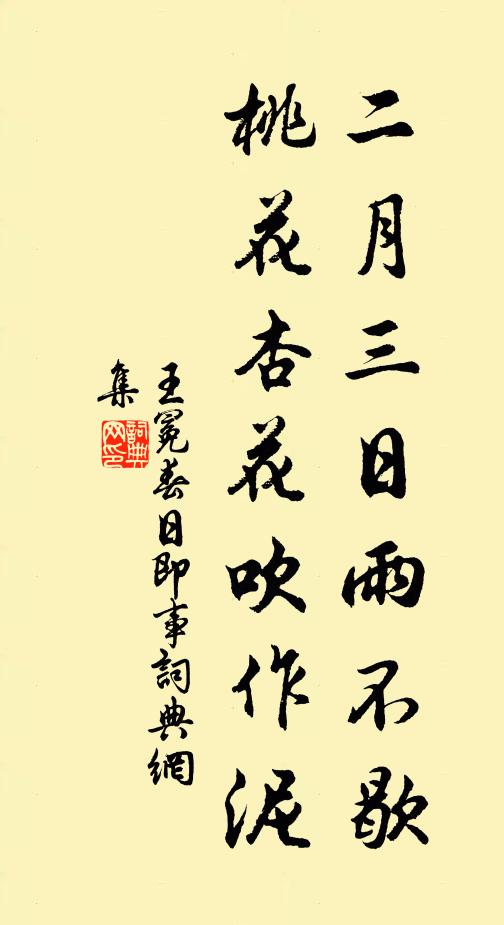 二月三日雨不歇
桃花杏花吹作泥
王冕春日即事詞典網
集
詞典
网印